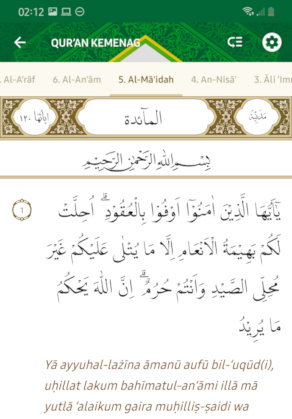 02:12
QUR'AN KEMENAG
. Al-A'rāf 6. Al-An'ām 5. Al-Mā'idah 4. An-Nisā' 3. Āli 'Imr
اٰياتُها ١٢٠ المآئدة مَدَنِيَّة
بِسْمِ اللّٰهِ الرَّحْمٰنِ الرَّحِيْمِ
١ يٰٓاَيُّهَا الَّذِيْنَ اٰمَنُوْٓا اَوْفُوْا بِالْعُقُوْدِۗ اُحِلَّتْ
لَكُمْ بَهِيْمَةُ الْاَنْعَامِ اِلَّا مَا يُتْلٰى عَلَيْكُمْ غَيْرَ
مُحِلِّى الصَّيْدِ وَاَنْتُمْ حُرُمٌۗ اِنَّ اللّٰهَ يَحْكُمُ
مَا يُرِيْدُ
Yā ayyuhal-lażīna āmanū aufū bil-'uqūd(i),
uḥillat lakum bahīmatul-an'āmi illā mā
yutlā 'alaikum gaira muḥilliṣ-ṣaidi wa